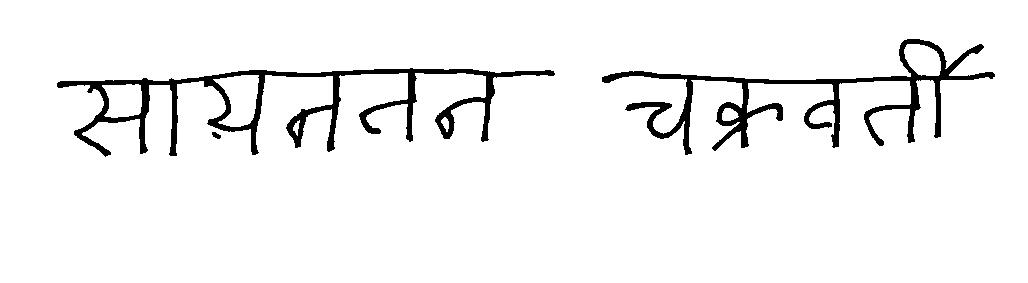 साय़नतन चक्रवर्ती